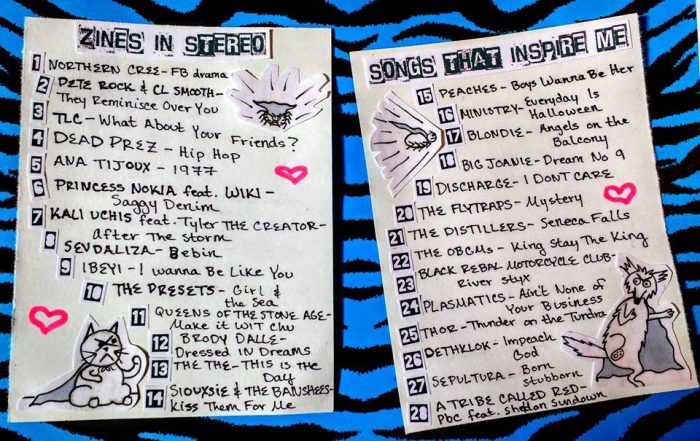 ZINES IN STEREO
1 NORTHERN CREE - FB drama
2 PETE ROCK & CL SMOOTH -
They Reminisce Over You
3 TLC - What About Your Friends?
4 DEAD PREZ - Hip Hop
5 ANA TIJOUX - 1977
6 PRINCESS NOKIA feat. WIKI -
Saggy Denim
7 KALI UCHIS feat. Tyler THE CREATOR -
After The Storm
8 SEVDALIZA - Bebin
9 IBEYI - I wanna Be Like You
10 THE PRESETS - Girl &
the Sea
11 QUEENS OF THE STONE AGE -
Make it WIT Chu
12 BRODY DALLE -
Dressed IN Dreams
13 THE THE - THIS IS THE
Day
14 SIOUXSIE & THE BANSHEES -
Kiss Them For Me
SONGS THAT INSPIRE ME
15 PEACHES - Boys Wanna Be Her
16 MINISTRY - Everyday Is
Halloween
17 BLONDIE - Angels on the
Balcony
18 BIG JOANIE - Dream No 9
19 DISCHARGE - I DONT CARE
20 THE FLYTRAPS - Mystery
21 THE DISTILLERS - Seneca Falls
22 THE OBGMs - King Stay The King
23 BLACK REBAL MOTORCYCLE CLUB -
River styx
24 PLASMATICS - Ain't None of
Your Business
25 THOR - Thunder on the Tundra
26 DETHKLOK - Impeach
God
27 SEPULTURA - Born
stubborn
28 A TRIBE CALLED RED -
PBC feat. sheldon sundown